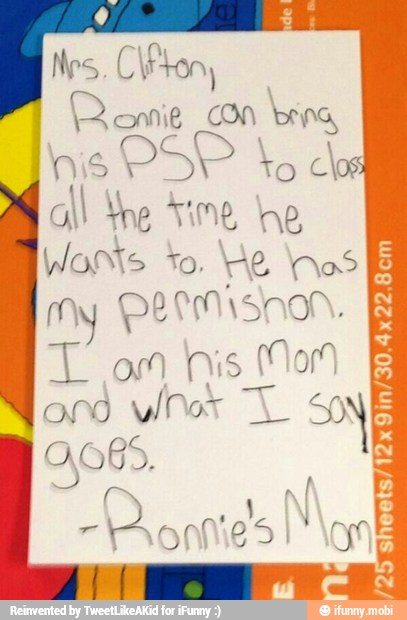 Mrs. Clifton,
Ronnie can bring
his PSP to class
all the time he
wants to. He has
my permishon.
I am his Mom
and what I say
goes.
-Ronnie's Mom
/25 sheets/12x9in/30.4x22.8cm
Reinvented by TweetLikeAKid for iFunny :)
ifunny.mobi